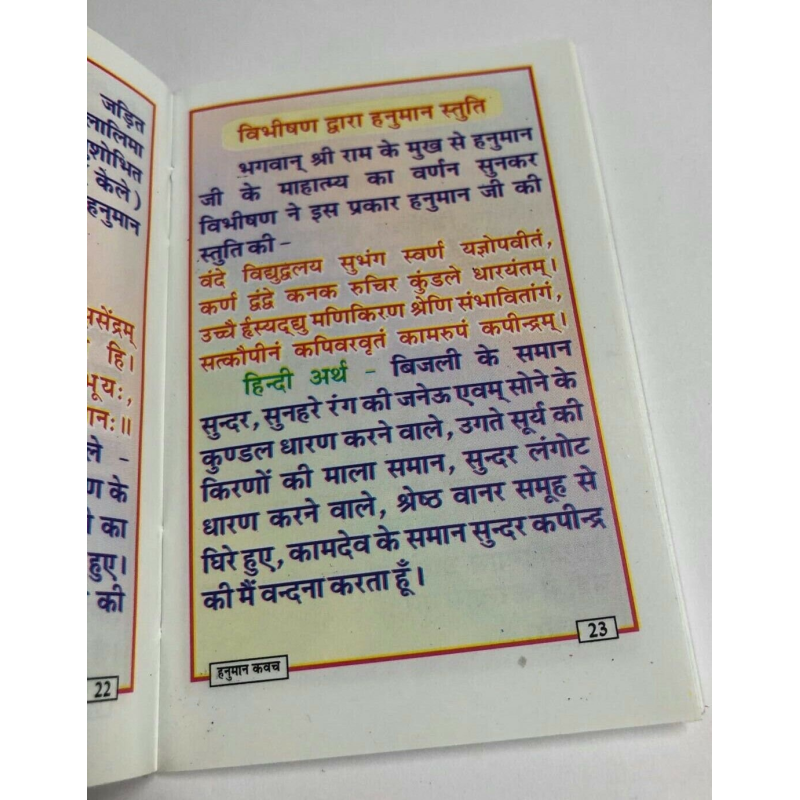 जड़ित
लालिमा
शोभित
केले)
हनुमान
हि।
ले -
के
का
हुए।
की
22
विभीषण द्वारा हनुमान स्तुति
भगवान् श्री राम के मुख से हनुमान
जी के माहात्म्य का वर्णन सुनकर
विभीषण ने इस प्रकार हनुमान जी की
स्तुति की -
वंदे विद्युद्वलय सुभंग स्वर्ण यज्ञोपवीतं,
कर्ण द्वंद्वे कनक रुचिर कुंडले धारयंतम्।
उच्चै र्हस्यद्द्यु मणिकिरण श्रेणि संभावितांगं,
सत्कौपीनं कपिवरवृतं कामरुपं कपीन्द्रम्।
हिन्दी अर्थ - बिजली के समान
सुन्दर, सुनहरे रंग की जनेऊ एवम् सोने के
कुण्डल धारण करने वाले, उगते सूर्य की
किरणों की माला समान, सुन्दर लंगोट
धारण करने वाले, श्रेष्ठ वानर समूह से
घिरे हुए, कामदेव के समान सुन्दर कपीन्द्र
की मैं वन्दना करता हूँ।
23
हनुमान कवच